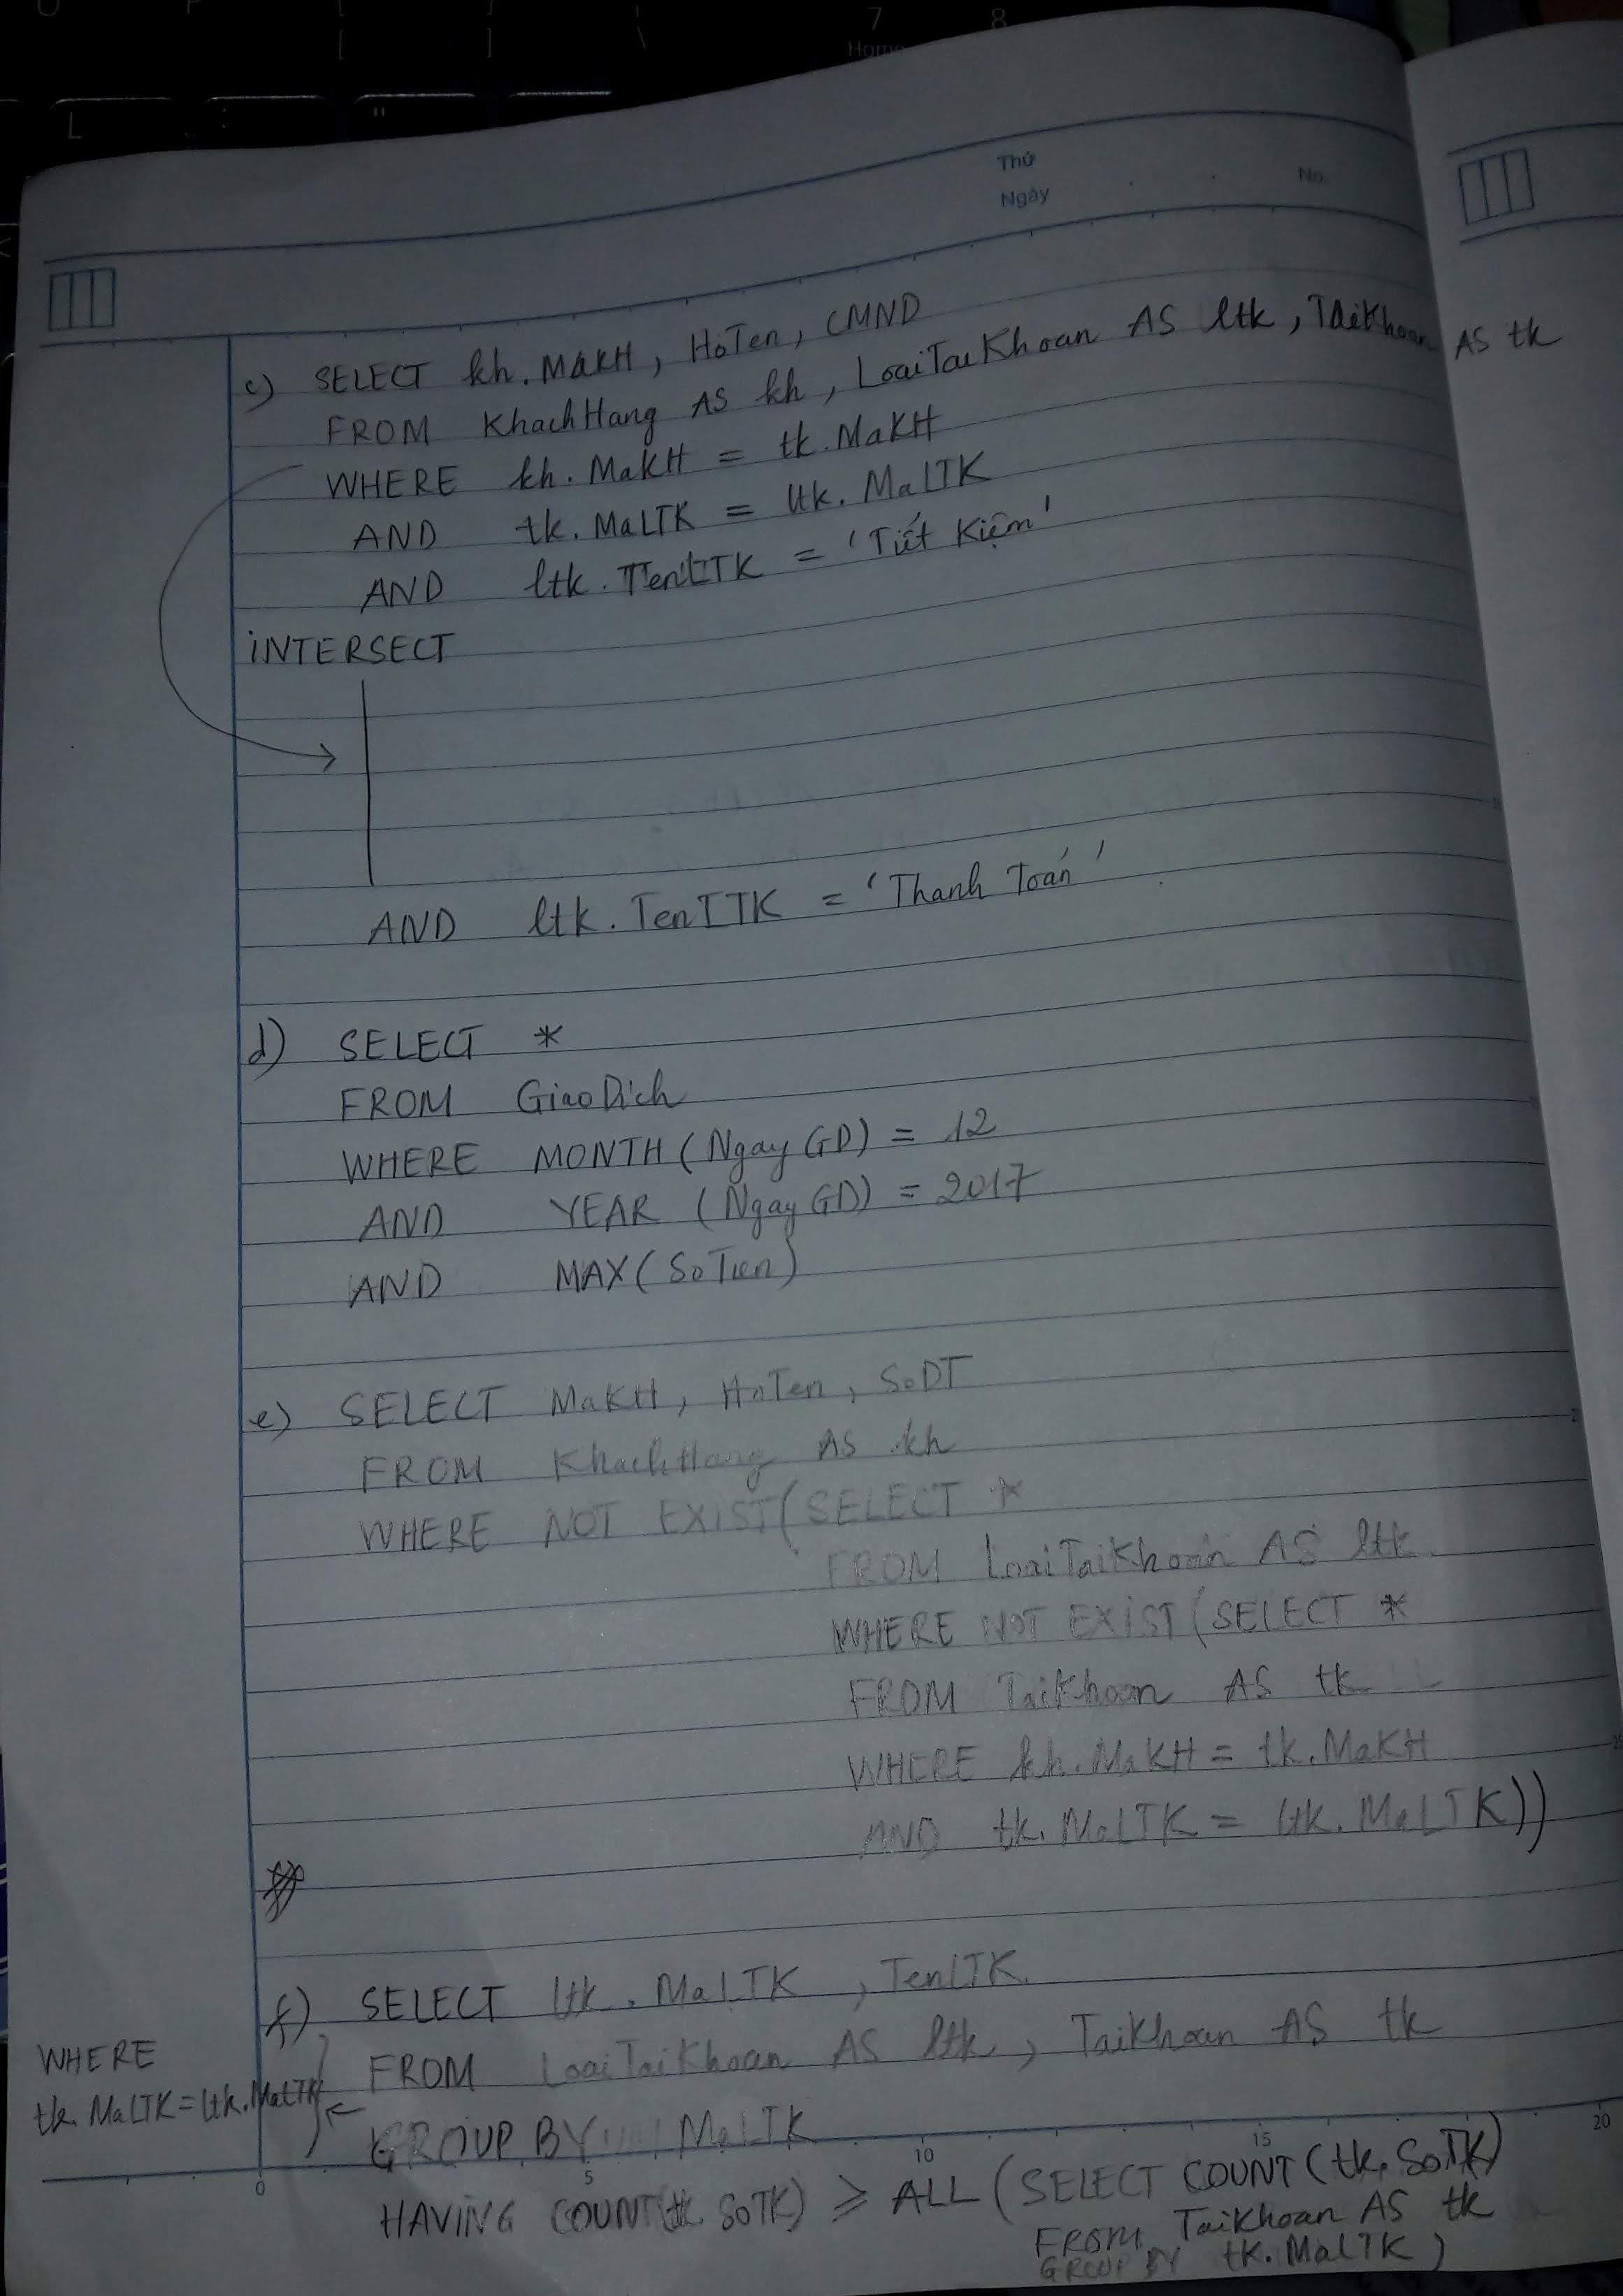 7
8
Home
[
]
\
L
:
"
Thứ
Ngày
No.
c) SELECT kh.MaKH, HoTen, CMND
FROM KhachHang AS kh, LoaiTaiKhoan AS ltk, TaiKhoan AS tk
WHERE kh.MaKH = tk.MaKH
AND tk.MaLTK = ltk.MaLTK
AND ltk.TenLTK = 'Tiết Kiệm'
INTERSECT
AND ltk.TenLTK = 'Thanh Toán'
d) SELECT *
FROM GiaoDich
WHERE MONTH(NgayGD) = 12
AND YEAR (NgayGD) = 2017
AND MAX(SoTien)
e) SELECT MaKH, HoTen, SoDT
FROM KhachHang AS kh
WHERE NOT EXIST(SELECT *
FROM LoaiTaiKhoan AS ltk
WHERE NOT EXIST(SELECT *
FROM TaiKhoan AS tk
WHERE kh.MaKH = tk.MaKH
AND tk.MaLTK = ltk.MaLTK))
f) SELECT ltk.MaLTK, TenLTK
FROM LoaiTaiKhoan AS ltk, TaiKhoan AS tk
WHERE
tk.MaLTK = ltk.MaLTK
GROUP BY MaLTK
0 5 10 15 20
HAVING COUNT(tk.SoTK) >= ALL(SELECT COUNT(tk.SoTK)
FROM TaiKhoan AS tk
GROUP BY tk.MaLTK)